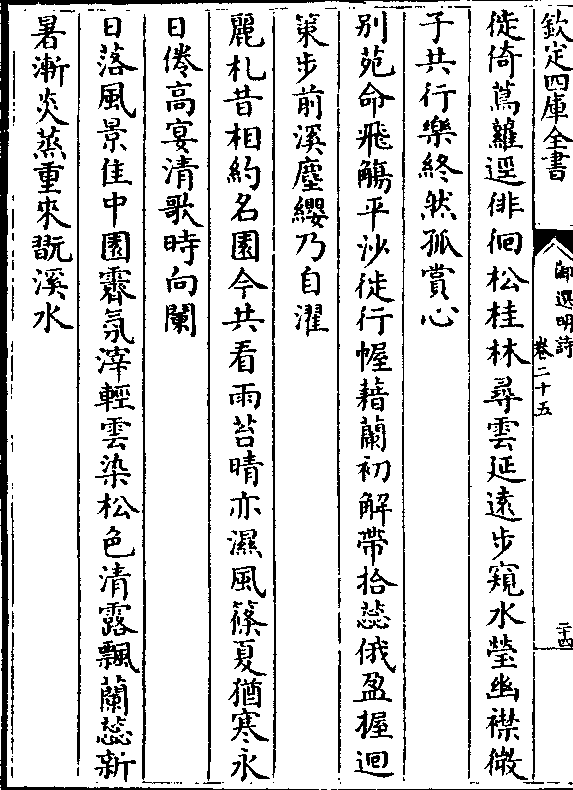 欽定四庫全書
御選明詩
卷二十五
二十四
徙倚蔦蘿逕徘徊松桂林尋雲延遠步窺水瑩幽襟微
子共行樂終然孤賞心
别苑命飛觴平沙徙行幄藉蘭初解帶拾蕊俄盈握迴
策步前溪塵纓乃自濯
麗札昔相約名園今共看雨苔晴亦濕風篠夏猶寒永
日倦高宴清歌時向闌
日落風景佳中園霽氛滓輕雲染松色清露飄蘭蕊新
暑漸炎蒸重來翫溪水